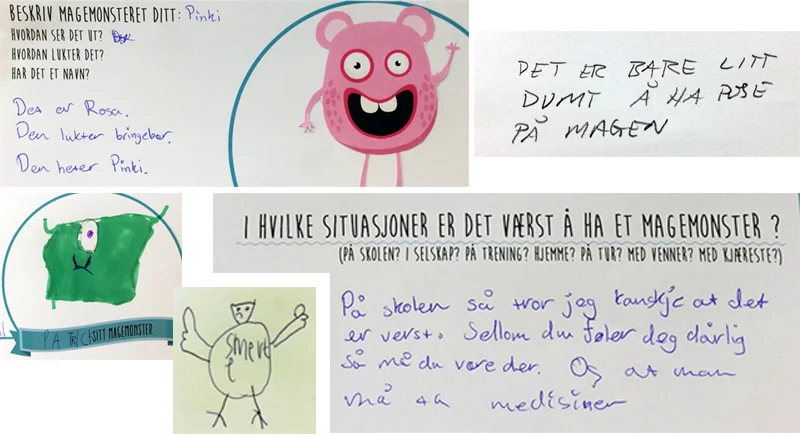 BESKRIV MAGEMONSTERET DITT: Pinki
HVORDAN SER DET UT?
HVORDAN LUKTER DET?
HAR DET ET NAVN?
Det er Rosa.
Den lukter bringeber.
Den heter Pinki.
DET ER BARE LITT
DUMT Å HA POSE
PÅ MAGEN
PATRICK SITT MAGEMONSTER
smert
e
I HVILKE SITUASJONER ER DET VÆRST Å HA ET MAGEMONSTER ?
(PÅ SKOLEN? I SELSKAP? PÅ TRENING? HJEMME? PÅ TUR? MED VENNER? MED KJÆRESTE?)
På skolen så tror jeg kanskje at det
er verst. Sellom du føler deg dårlig
så må du være der. Og at man
må ta medisiner